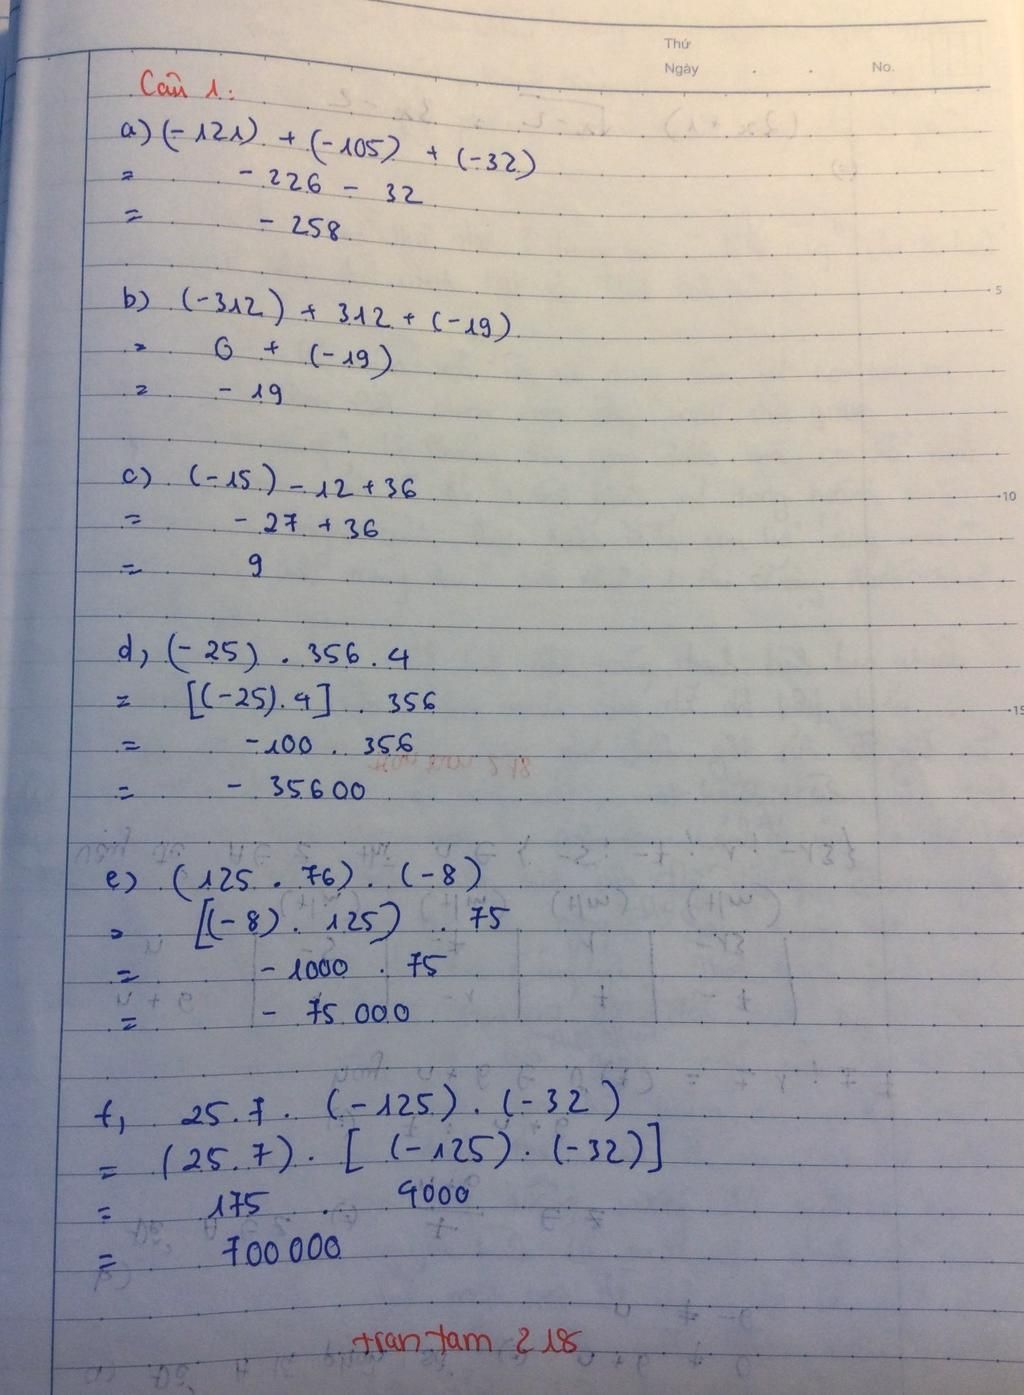 Thứ
Ngày . . No.
Câu 1:
a) (-121) + (-105) + (-32)
= -226 - 32
= -258
5
b) (-312) + 312 + (-19)
= 0 + (-19)
= -19
c) (-15) - 12 + 36
10
= -27 + 36
= 9
d, (-25) . 356 . 4
= [(-25) . 4] . 356
15
= -100 . 356
= - 35600
e) (125 . 76) . (-8)
= [(-8) . 125) . 75
= -1000 . 75
= - 75 000
f, 25.7 . (-125) . (-32)
= (25.7) . [(-125) . (-32)]
= 175 . 4000
= 700 000
tran tam 218